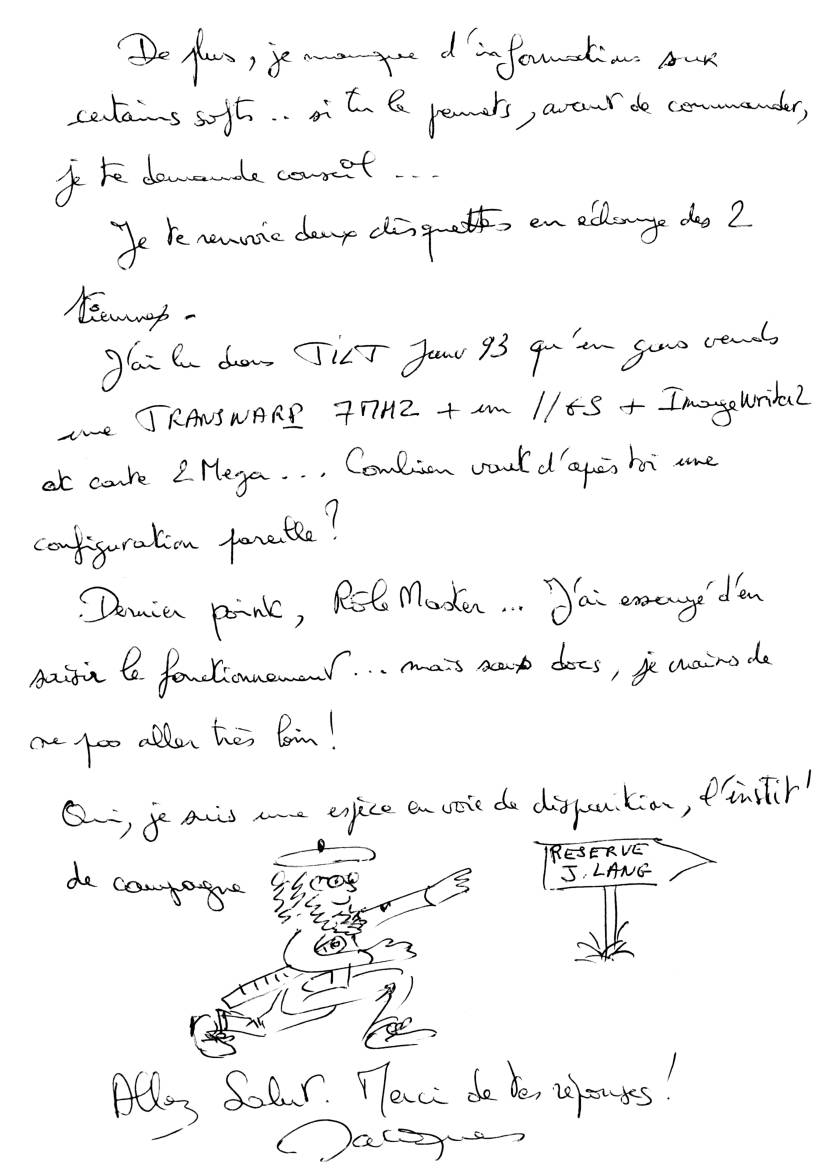 De plus, je manque d'informations sur
certains softs .. si tu le permets, avant de commander,
je te demande conseil ...
Je te renvoie deux disquettes en échange des 2
tiennes -
J'ai lu dans TILT Janv 93 qu'un gus vends
une TRANSWARP 7 MHZ + un //GS + ImageWriter2
et carte 2 Mega ... Combien vaut d'après toi une
configuration pareille ?
Dernier point, Rôle Master ... J'ai essayé d'en
saisir le fonctionnement ... mais sans docs, je crains de
ne pas aller très loin !
Oui, je suis une espèce en voie de disparition, l'instit'
de campagne
RESERVE
J. LANG
Allez Salut. Merci de tes réponses !
Jacques